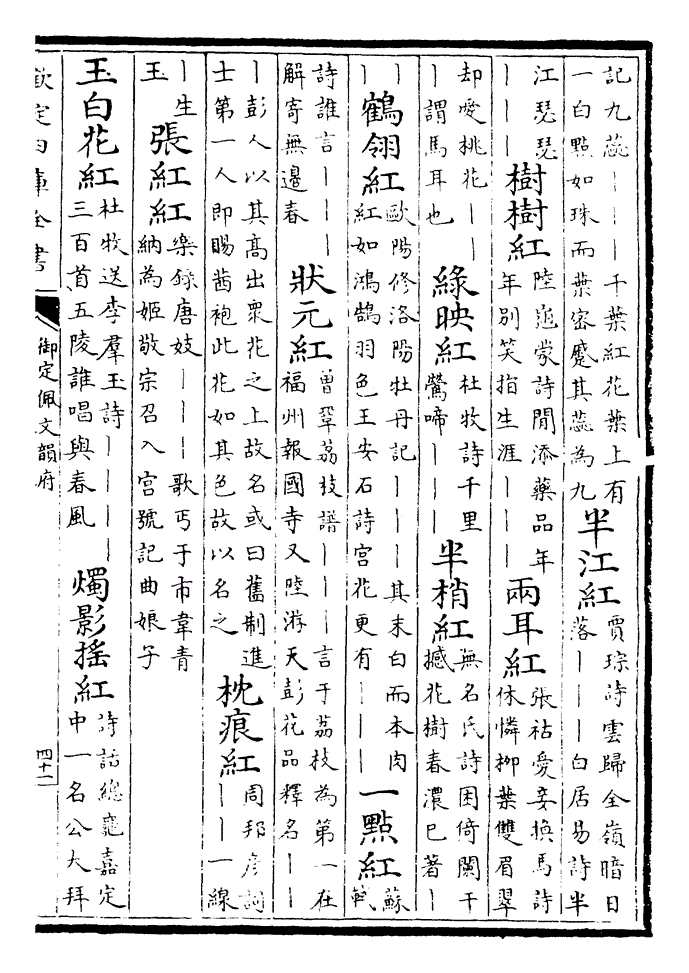 記九蕊｜｜｜千葉紅花葉上有
一白點如珠而葉密蹙其蕊為九
半江紅
賈琮詩雲歸全嶺暗日
落｜｜｜白居易詩半
江瑟瑟
｜｜｜
樹樹紅
陸龜蒙詩閒添藥品年
年別笑指生涯｜｜｜
兩耳紅
張祜愛妾換馬詩
休憐柳葉雙眉翠
却愛桃花｜｜
｜謂馬耳也
綠映紅
杜牧詩千里
鶯啼｜｜｜
半梢紅
無名氏詩困倚闌干
撼花樹春濃巳著｜
｜
｜
鶴翎紅
歐陽修洛陽牡丹記｜｜｜其末白而本肉
紅如鴻鵠羽色王安石詩宮花更有｜｜｜
一點紅
蘇
軾
詩誰言｜｜｜
解寄無邊春
狀元紅
曾鞏荔枝譜｜｜｜言于荔枝為第一在
福州報國寺又陸游天彭花品釋名｜｜
｜彭人以其高出眾花之上故名或曰舊制進
士第一人即賜茜袍此花如其色故以名之
枕痕紅
周邦彥詞
｜｜一線
｜生
玉
張紅紅
樂錄唐妓｜｜｜歌丐于市韋青
納為姬敬宗召入宮號記曲娘子
玉白花紅
杜牧送李羣玉詩｜｜｜｜
三百首五陵誰唱與春風
燭影搖紅
詩話總龜嘉定
中一名公大拜
欽定四庫全書
御定佩文韻府